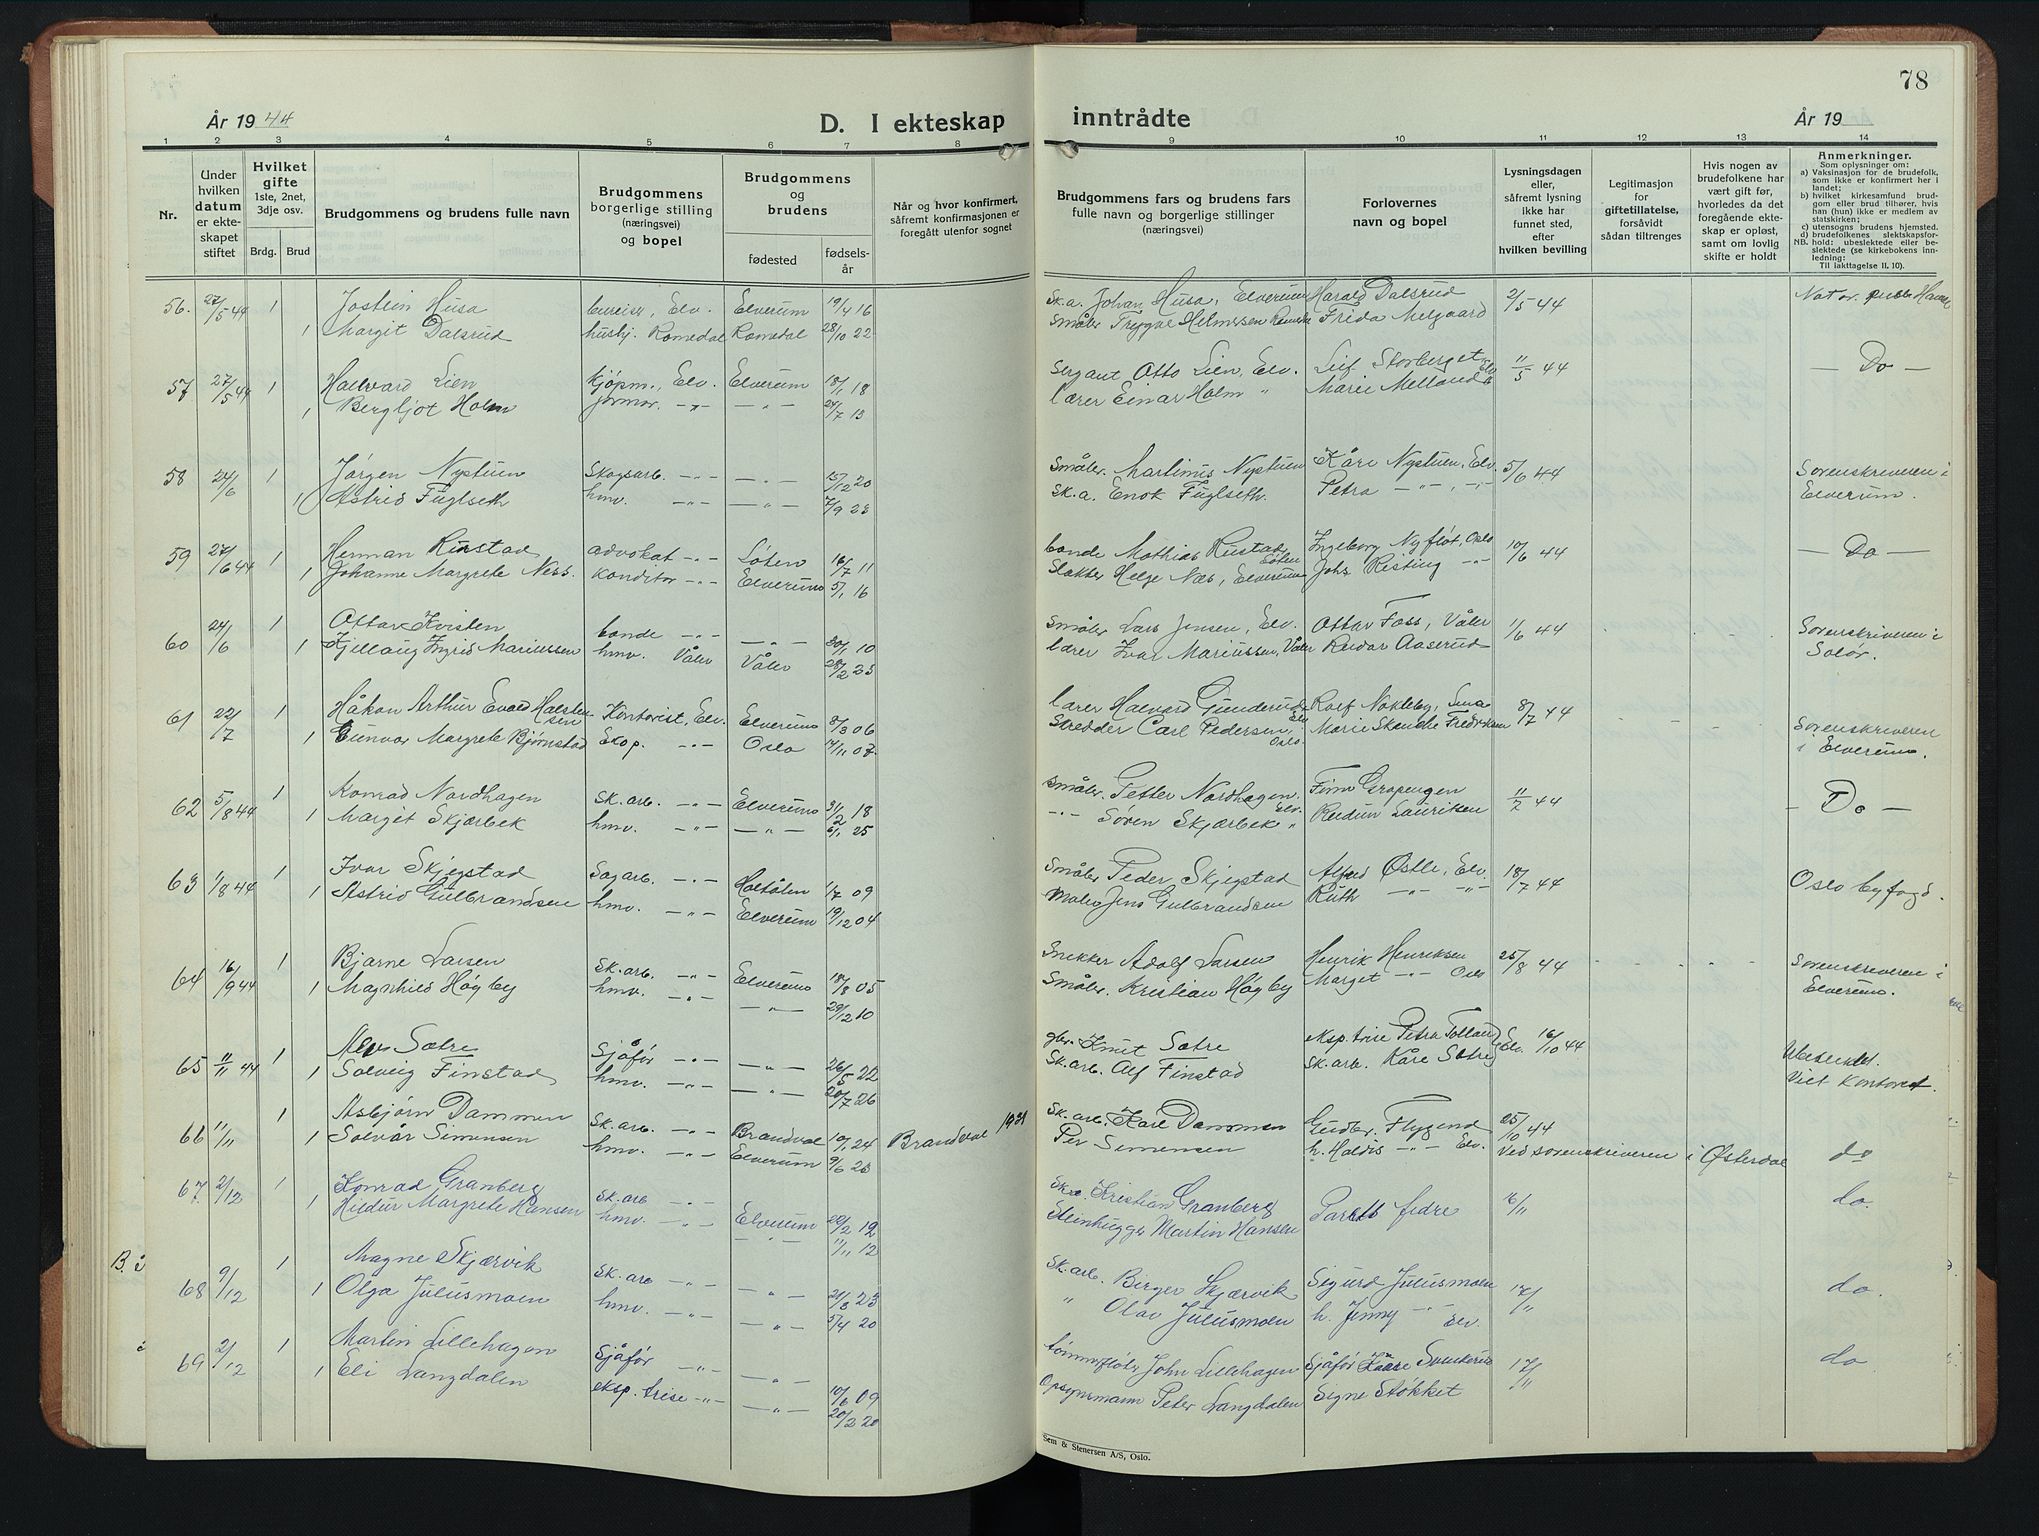 78
År 1944
D. I ekteskap inntrådte
År 19
1 2 3 4 5 6 7 8 9 10 11 12 13 14
Nr.
Under hvilken datum er ekteskapet stiftet
Hvilket gifte 1ste, 2net, 3dje osv.
Brdg. Brud
Brudgommens og brudens fulle navn
Brudgommens borgerlige stilling (næringsvei) og bopel
Brudgommens og brudens
fødested
fødselsår
Når og hvor konfirmert, såfremt konfirmasjonen er foregått utenfor sognet
Brudgommens fars og brudens fars fulle navn og borgerlige stillinger (næringsvei)
Forlovernes navn og bopel
Lysningsdagen eller, såfremt lysning ikke har funnet sted, efter hvilken bevilling
Legitimasjon for giftetillatelse, forsåvidt sådan tiltrenges
Hvis nogen av brudefolkene har vært gift før, hvorledes da det foregående ekteskap er opløst, samt om lovlig skifte er holdt
Anmerkninger.
Som oplysninger om:
a) Vaksinasjon for de brudefolk, som ikke er konfirmert her i landet;
b) hvilket kirkesamfund brudgom eller brud tilhører, hvis han (hun) ikke er medlem av statskirken;
c) utensogns brudens hjemsted.
d) brudefolkenes slektskapsforhold: ubeslektede eller beslektede (se kirkebokens innledning:
NB.
Til iakttagelse II, 10).
56. 27/5 44 1 Jostein Husa bureiser, Elv. Elverum 19/4 16 Sk.a. Johan Husa, Elverum Harald Dalsrud 2/5 44 Notar. publ. Hamar
1 Margit Dalsrud husbj. Romedal Romedal 28/10 22 Småbr. Trygve Helmersen Frida Melgaard
57 27/5 44 1 Hallvard Lien Kjøpm., Elv. Elverum 18/1 18 Sersjant Otto Lien, Elv. Leif Storberget Elv. 11/5 44 — Do —
1 Bergljot Holm jormor. —"— —"— 24/7 13 lærer Einar Holm " Marie Melland
58 24/6 1 Jørgen Nystuen Skogsarb. —"— —"— 25/12 20 Småbr. Martinus Nystuen Kåre Nystuen, Elv. 5/6 44 Sorenskriveren i Elverum.
1 Astrid Fuglseth hmv. —"— —"— 7/9 23 Sk.a. Enok Fuglseth. Petra —"—, —"—
59 27/6 44 1 Herman Rustad advokat —"— Løten 16/7 11 bonde Mathias Rustad Løten Ingeborg Nyfløt, Oslo 10/6 44 — Do —
1 Johanne Margrete Ness. Konditor —"— Elverum 5/1 16 Slakter Helge Næs, Elverum Johs Risting —"—
60 24/6 1 Ottar Kvisten bonde —"— —"— 30/1 10 Småbr. Lars Jensen, Elv. Ottar Foss, Våler 1/6 44 Sorenskriveren i Solør.
1 Kjellaug Ingrid Mariussen hmv. Våler Våler 28/2 23 lærer Ivar Mariussen, Våler Reidar Aaserud
61 22/7 1 Håkon Arthur Evald Halstensen Kontorist, Elv. Elverum 8/3 06 lærer Halvard Gunderud Elv. Rolf Nokleby, 8/7 44 Sorenskriveren i Elverum.
1 Gunvor Margrete Bjørnstad Eksp. —"— Oslo 14/11 07 Skredder Carl Pedersen, Oslo. Marie Skancke Fredriksen
62 5/8 44 1 Konrad Nordhagen Sk. arb. —"— Elverum 31/2 18 småbr. Petter Nordhagen. Elv. Finn Grapengen 11/7 44 — Do —
1 Margit Skjærbek hmv. —"— —"— 6/1 25 —"— Soren Skjærbek " Reidun Lauritsen
63 1/8 44 1 Ivar Skjegstad Sagarb. —"— Holtålen 1/7 09 Småbr. Peder Skjegstad Alfred Østle, Elv. 18/7 44 Oslo byfogd.
1 Astrid Gulbrandsen hmv. —"— Elverum 19/12 04 Maler Jens Gulbrandsen Ruth —"— —"—
64 16/9 44 1 Bjarne Larsen Sk. arb. —"— Elverum 18/8 05 Snekker Adolf Larsen Henrik Henriksen 25/8 44 Sorenskriveren i Elverum.
1 Magnhild Høgby hmv. —"— —"— 29/12 10 Småbr. Kristian Høgby Marget —"— Oslo
65 11/11 44 1 Alv Sætre Sjåfør —"— —"— 26/5 22 gbr. Knut Sætre eksp. trise Petra Tolland Elv. 16/10 44 Ubeslektet. Viet Kontoret.
1 Solveig Finstad hmv. —"— —"— 20/7 26 Sk. arb. Alf Finstad Sk. arb. Kåre Sætre
66 11/11 1 Asbjørn Dammen Sk. arb. —"— Brandval 10/1 24 Brandval 1931 Sk. arb. Kåre Dammen Gudbr. Flygend 25/10 44 do
1 Solvår Simensen hmv. —"— Elverum 9/6 23 Per Simensen h. Haldis —"— Elv. Ved sorenskriveren i Østerdal
67 2/12 1 Konrad Granberg Sk. arb —"— Elverum 22/2 12 Sk.a. Kristian Granberg Parets fedre 16/11 do.
1 Hildur Margrete Hansen hmv. —"— —"— 11/11 12 Steinhugger Martin Hansen
B.
68 9/12 1 Magne Skjærvik Sk. arb —"— —"— 21/8 23 Sk. arb. Berger Skjærvik Sigurd Julusmoen 17/11 do.
1 Olga Julusmoen hmv. —"— —"— 5/4 20 " Olav Julusmoen h. Jenny —"— Elv.
69 2/12 1 Martin Lillehagen Sjåfør —"— —"— 10/6 09 tømmerfløter John Lillehagen Sjåfør Kåre 17/11 do
1 Eli Langdalen eksp. trise —"— —"— 20/2 20 Opsynsmann Peter Langdalen Signe Støkket
Sem & Stenersen A/S, Oslo.